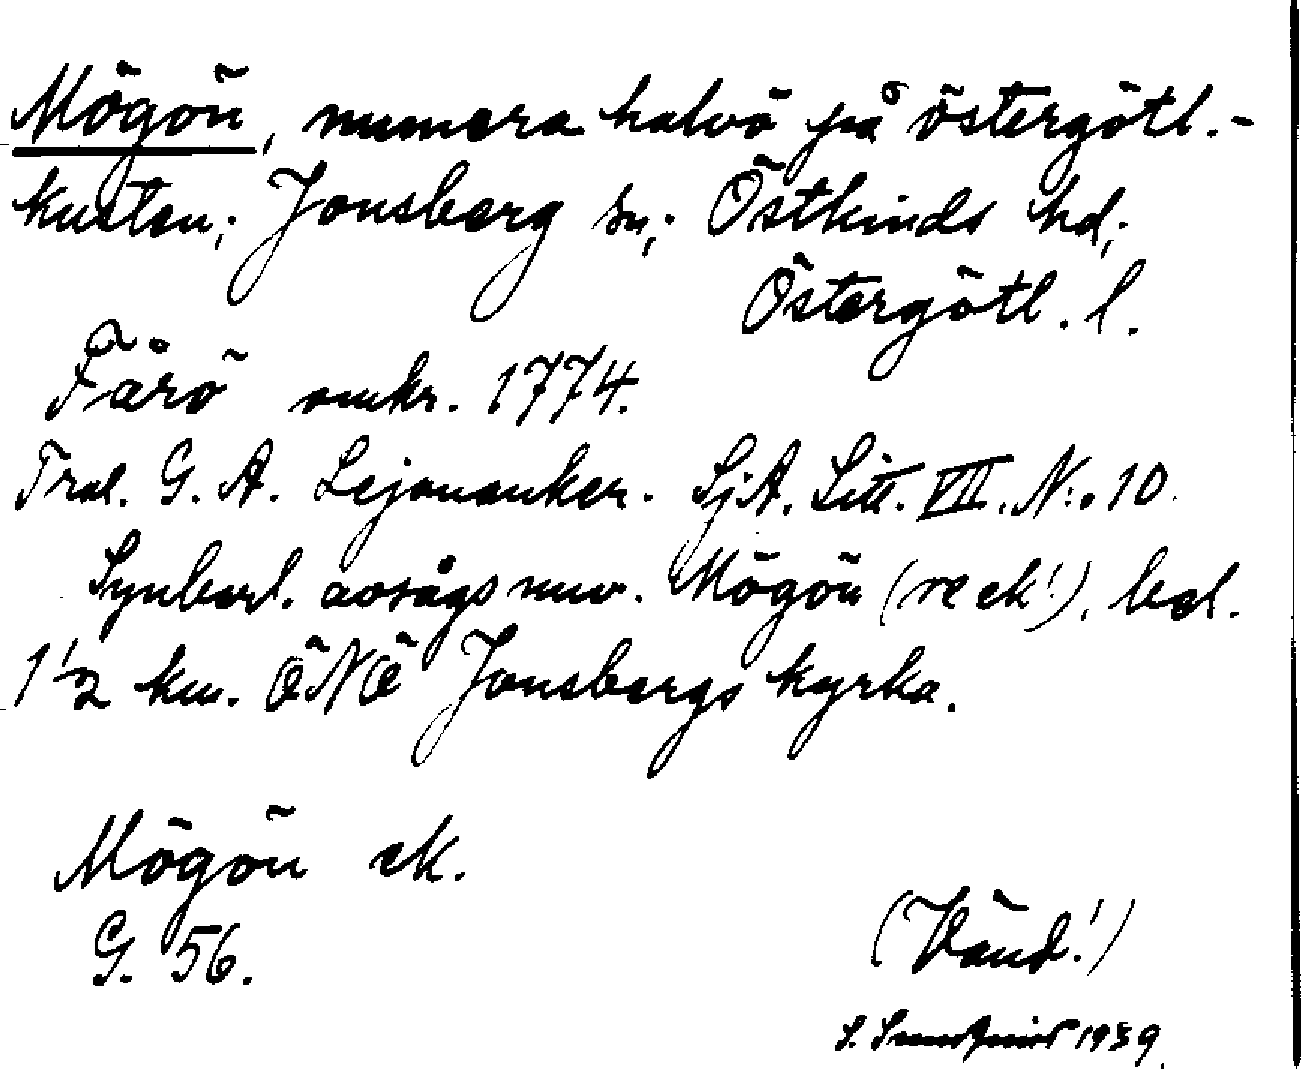 Mögön, numera halvö på östergötl.-
kusten; Jonsberg sn; Östkinds hd;
Östergötl. l.
Färö omkr. 1774.
Tral. G. A. Lejonanker. SjA. Litt. VII. N:o 10.
Synbarl. avsågs nuv. Mögön (se ek!), bel.
1 1/2 km. ÖNÖ Jonsbergs kyrka.
Mögön ek.
G. 56.
(Vänd!)
S. 1939